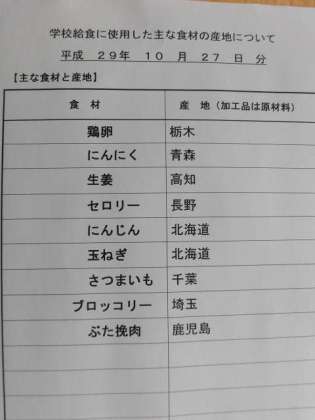 学校給食に使用した主な食材の産地について
平成 29年 10 月 27 日 分
【主な食材と産地】
食 材 産 地（加工品は原材料）
鶏卵 栃木
にんにく 青森
生姜 高知
セロリー 長野
にんじん 北海道
玉ねぎ 北海道
さつまいも 千葉
ブロッコリー 埼玉
ぶた挽肉 鹿児島